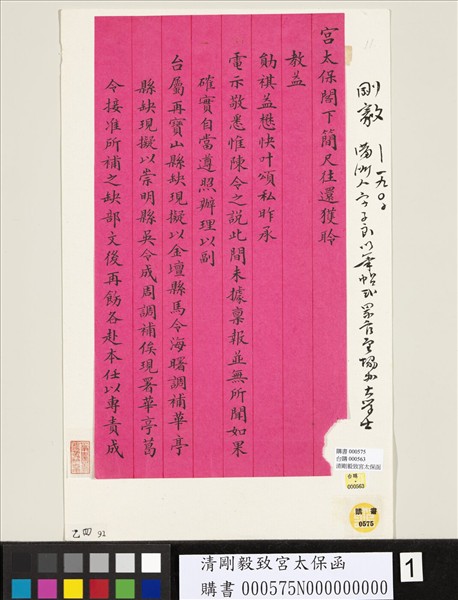 剛毅 —一九〇〇 滿洲人字子良以筆帖式累官至協辦大學士
宮太保閣下簡尺往還獲聆
教益
勛祺益懋快叶頌私昨承
電示敬悉惟陳令之說此間未據稟報並無所聞如果
確實自當遵照辦理以副
台屬再寶山縣缺現擬以金壇縣馬令海曙調補華亭
縣缺現擬以崇明縣吳令成周調補俟現署華亭葛
令接准所補之缺部文後再飭各赴本任以專責成
購書 000575
台購 000563
清剛毅致宮太保函
台購
000563
購書
0575
乙四 92
清剛毅致宮太保函
購書 000575N000000000
1